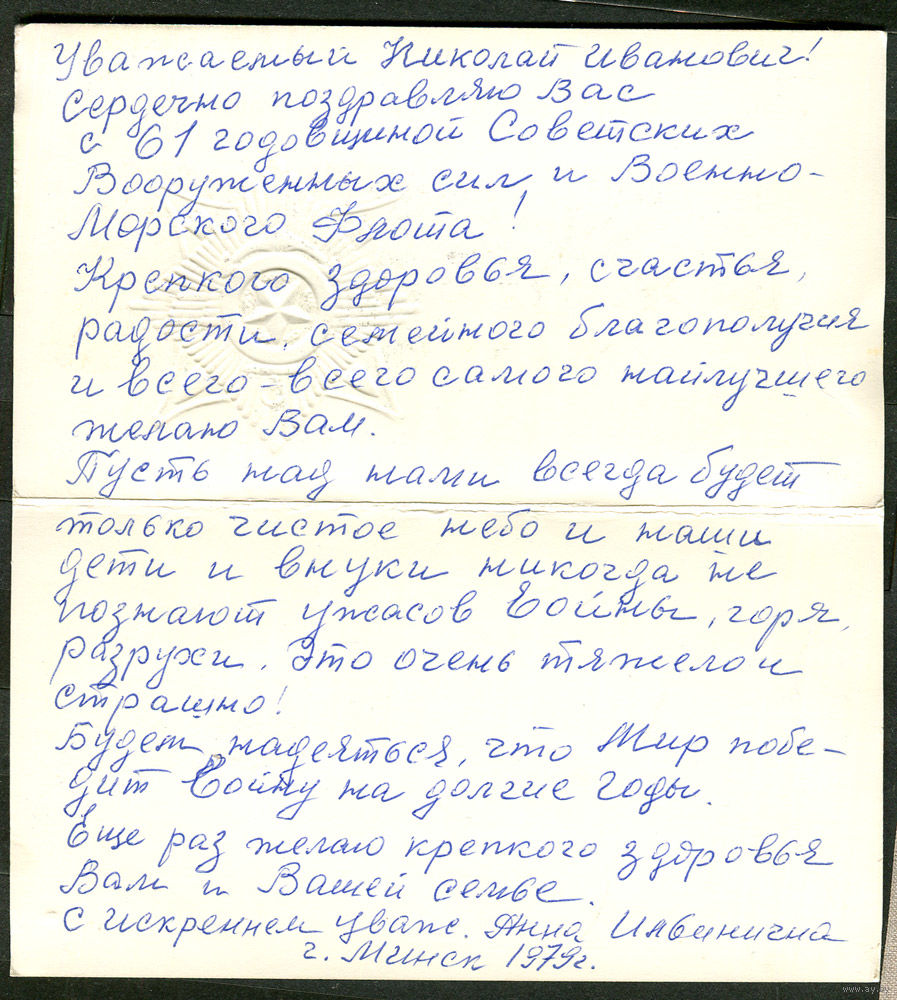 Уважаемый Николай Иванович!
Сердечно поздравляю Вас
с 61 годовщиной Советских
Вооруженных сил и Военно-
Морского Флота!
Крепкого здоровья, счастья,
радости, семейного благополучия
и всего-всего самого найлучшего
желаю Вам.
Пусть над нами всегда будет
только чистое небо и наши
дети и внуки никогда не
познают ужасов Войны, горя,
разрухи. Это очень тяжело и
страшно!
Будем надеяться, что Мир побе-
дит Войну на долгие годы.
Еще раз желаю крепкого здоровья
Вам и Вашей семье.
С искренем уваж. Анна Ильинична
г. Минск 1979г.
www.ay.by